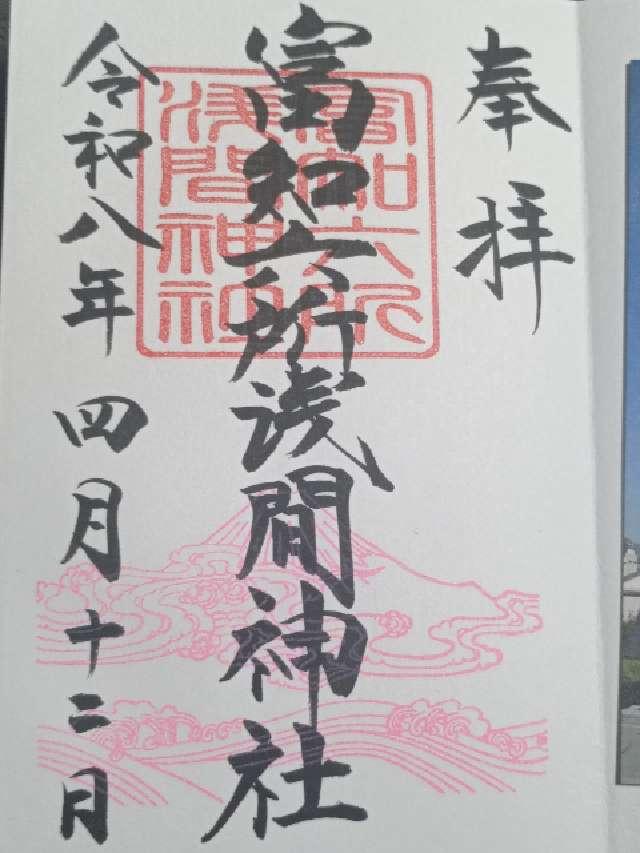 奉拝
富知六所浅間神社
富知六所
浅間神社
令和八年 四月十二日